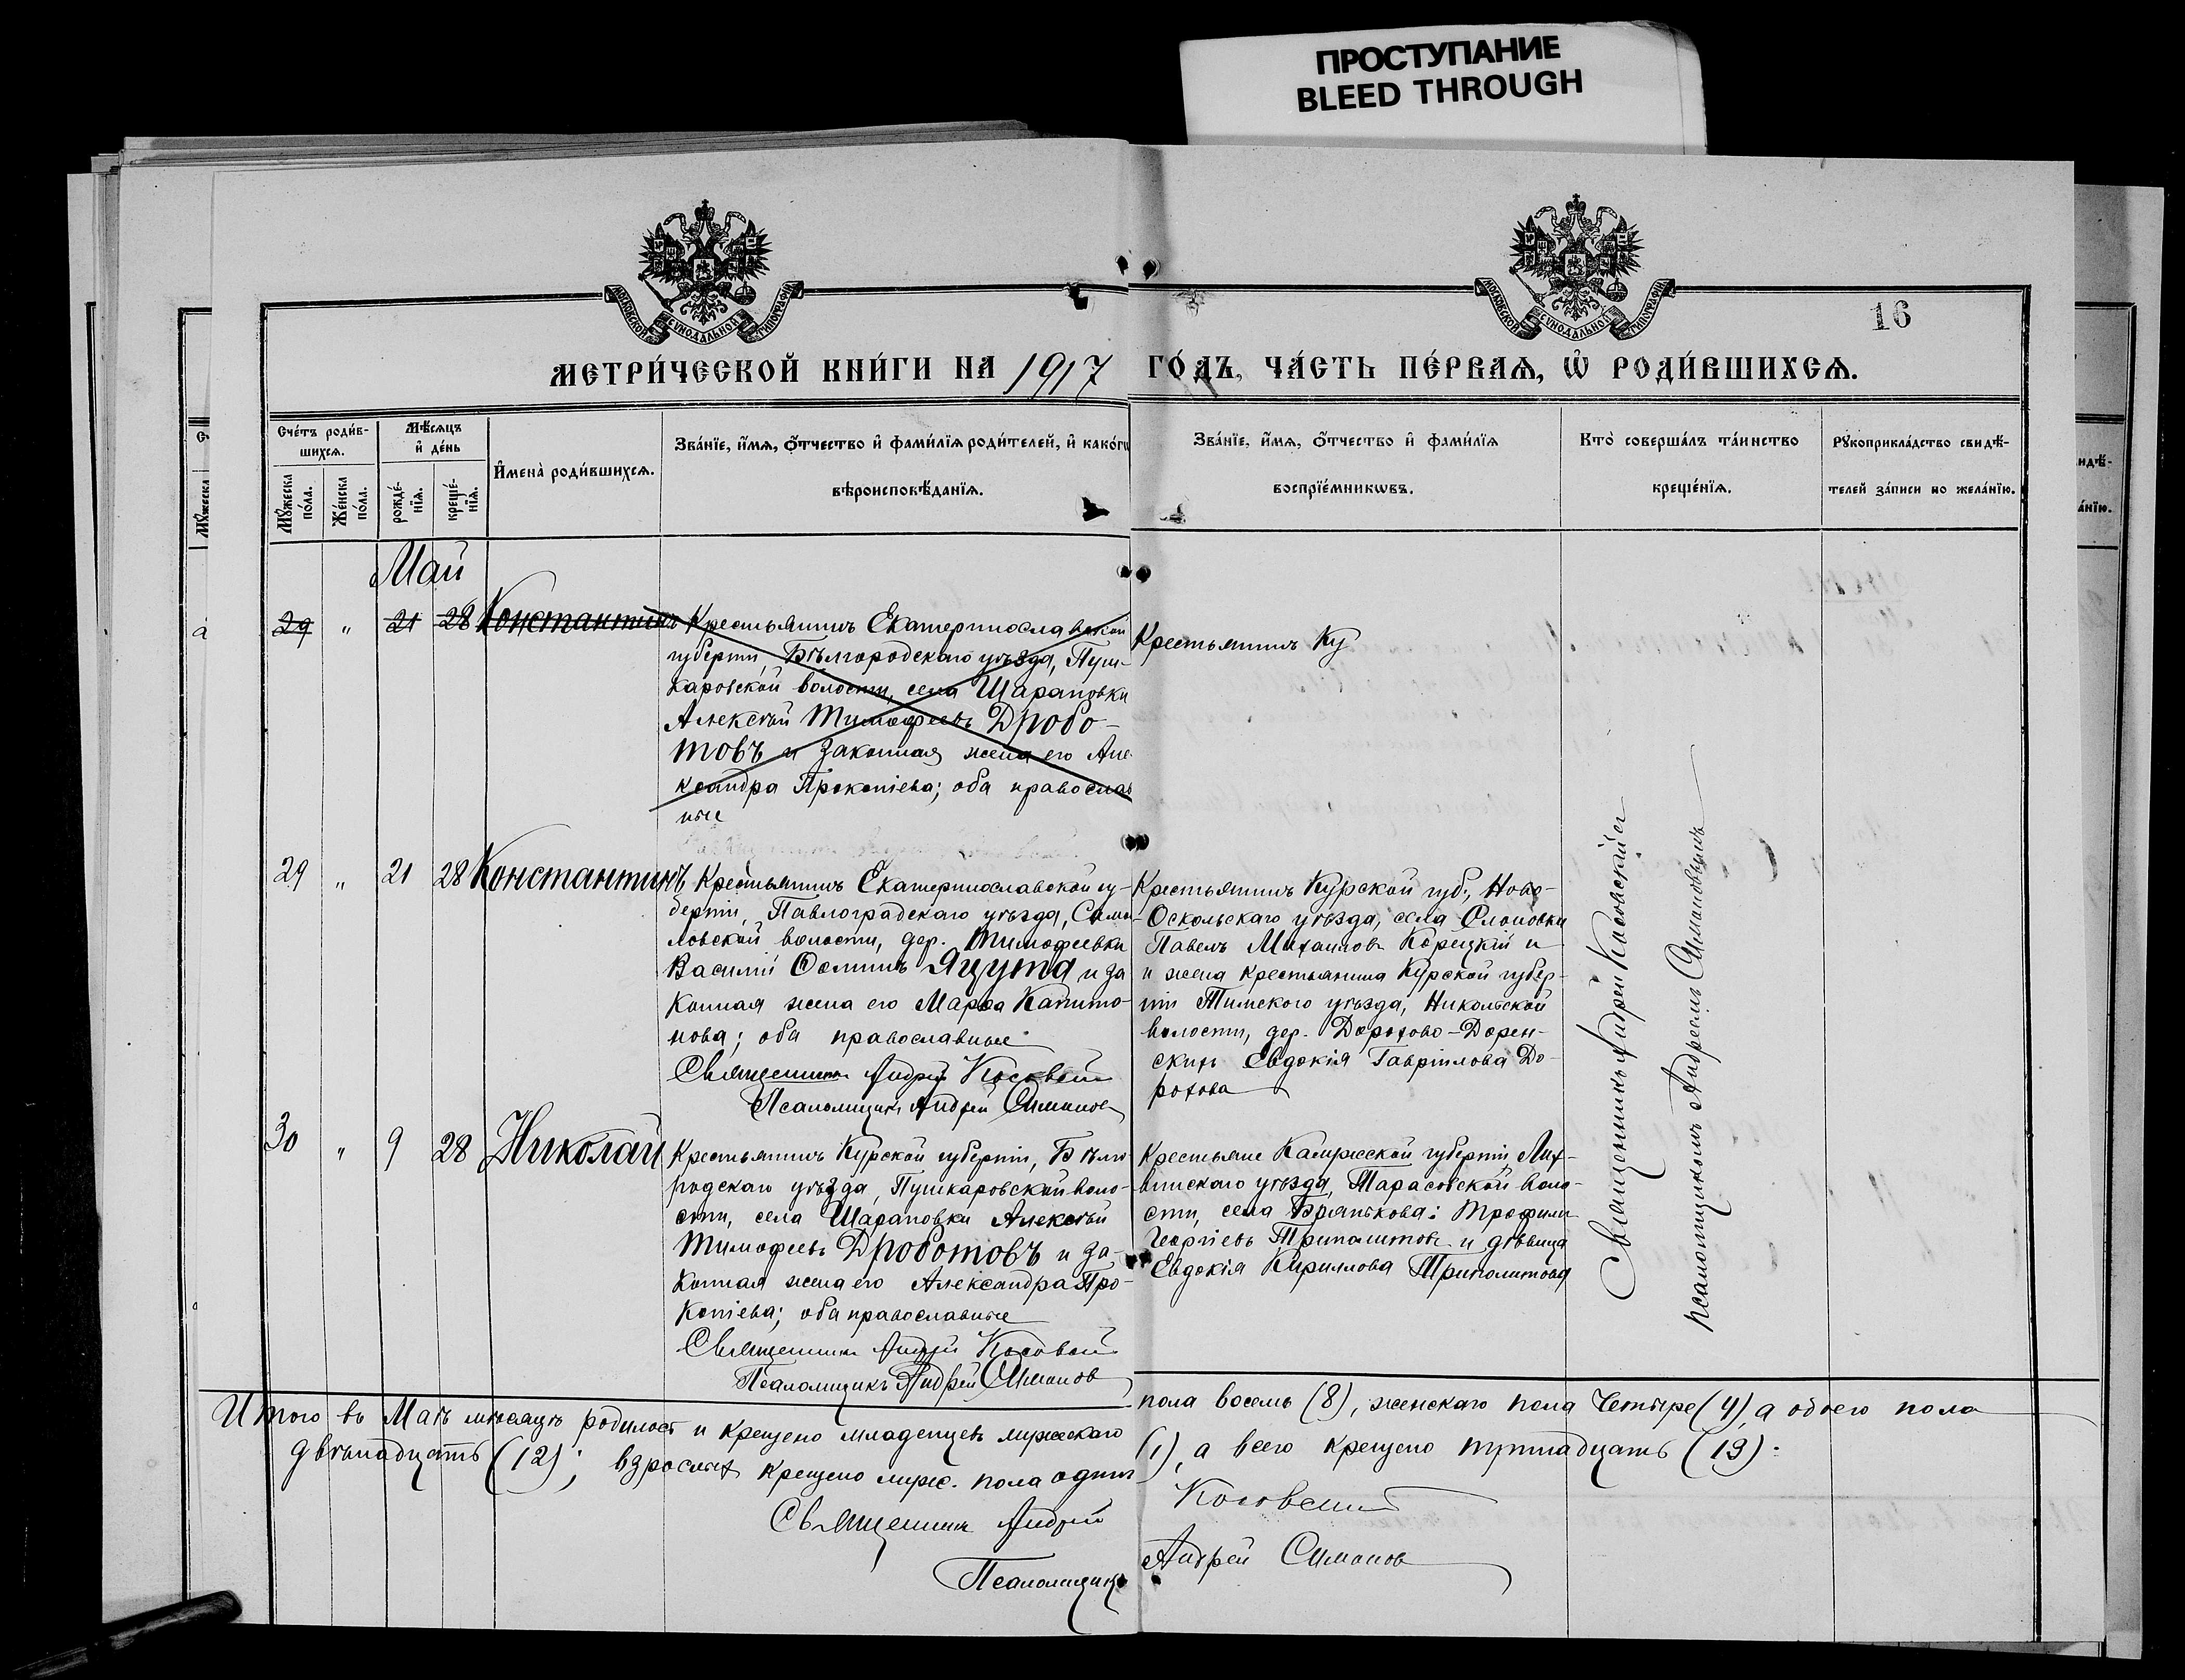 ПРОСТУПАНИЕ
BLEED THROUGH
МОСКОВСКОЙ СѴНОДАЛЬНОЙ ТИПОГРАФІИ
МОСКОВСКОЙ СѴНОДАЛЬНОЙ ТИПОГРАФІИ
16
МЕТРИ́ЧЕСКОЙ КНИ́ГИ НА 1917 ГО́ДЪ, ЧА́СТЬ ПЕ́РВАѦ, Ѽ РОДИ́ВШИХСѦ.
Сче́тъ роди́в-
шихсѧ.
Мꙋ́жеска по́ла.
Же́нска по́ла.
Мѣ́сѧцъ
и҆ де́нь
рожде́-
нїѧ.
креще́-
нїѧ.
И҆мена̀ роди́вшихсѧ.
Зва́нїе, и҆́мѧ, ѻ҆́тчество и҆ фами́лїѧ роди́телей, и҆ како́гѡ
вѣроисповѣ́данїѧ.
Зва́нїе, и҆́мѧ, ѻ҆́тчество и҆ фами́лїѧ
воспрїе́мникѡвъ.
Кто̀ соверша́лъ та́инство
креще́нїѧ.
Рꙋкоприкла́дство свидѣ́-
телей за́писи по жела́нїю.
Май
29 " 21 28 Константинъ
Крестьянинъ Екатеринославской
губерніи, Бѣлгородскаго уѣзда, Пуш-
каровской волости, села Шараповки
Алексѣй Тимофеевъ Дробо-
товъ и законная жена его Але-
ксандра Прокопіева; оба православ
ные
Крестьянинъ Ку
29 " 21 28 Константинъ
Крестьянинъ Екатеринославской гу-
берніи, Павлоградскаго уѣзда,
ловской волости, дер. Тимофеевки
Василій Ѳоминъ Яцута и за
конная жена его Марѳа Капито-
нова; оба православные
Священникъ Андрей
Псаломщикъ Андрей Симонов
Крестьянинъ Курской губ., Ново-
Оскольскаго уѣзда, села Слоновки
Павелъ Михаиловъ Корецкій и
и жена крестьянина Курской губер-
ніи Тимского уѣзда, Никольской
волости, дер. Дорохово-Дорен-
скихъ Евдокія Гавріилова До-
рохова
30 " 9 28 Николай
Крестьянинъ Курской губерніи, Бѣлго
родскаго уѣзда, Пушкаровской воло-
сти, села Шараповки Алексѣй
Тимофеевъ Дроботовъ и за-
конная жена его Александра Про-
копіева; оба православные
Священникъ Андрей
Псаломщикъ Андрей Симонов
Крестьяне Калужской губерніи, Лих-
винскаго уѣзда, Тарасовской воло-
сти, села Трофимъ
Георгіевъ Триполитовъ и дѣвица
Евдокія Кириллова Триполитова
Священникъ Андрей
псаломщикомъ Андреемъ Симоновымъ
Итого въ Маѣ мѣсяцѣ родилось и крещено младенцевъ мужескаго пола восемь (8), женскаго пола четыре (4), а обоего пола
двѣнадцать (12); взрослыхъ крещено муж. пола одинъ (1), а всего крещено тринадцать (13).
Священникъ Андрей
Псаломщикъ Андрей Симонов